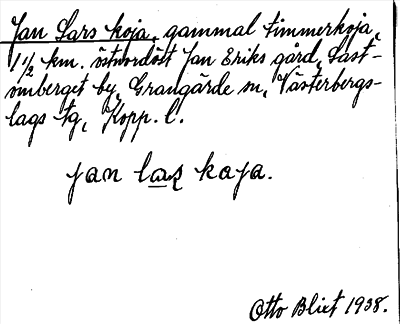 Jan Lars koja, gammal timmerkoja,
1 1/2 km. östnordöst Jan Eriks gård, Last-
omberget by, Grangärde sn, Västerbergs-
lags tg, Kopp. l.
jan laʂ kaja.
Otto Blixt 1938.